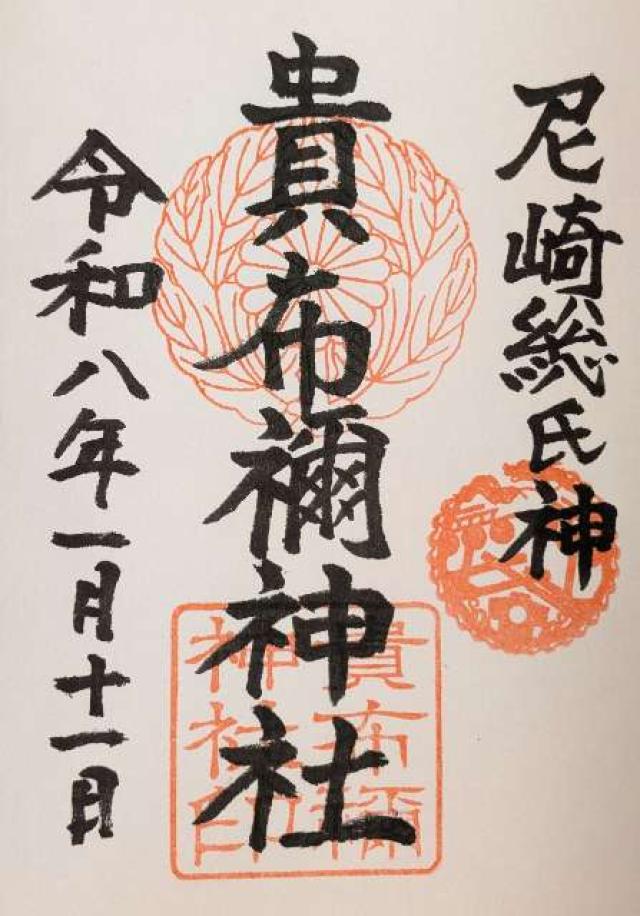 尼崎総氏神
貴布禰神社
貴布禰
神社印
令和八年一月十一日